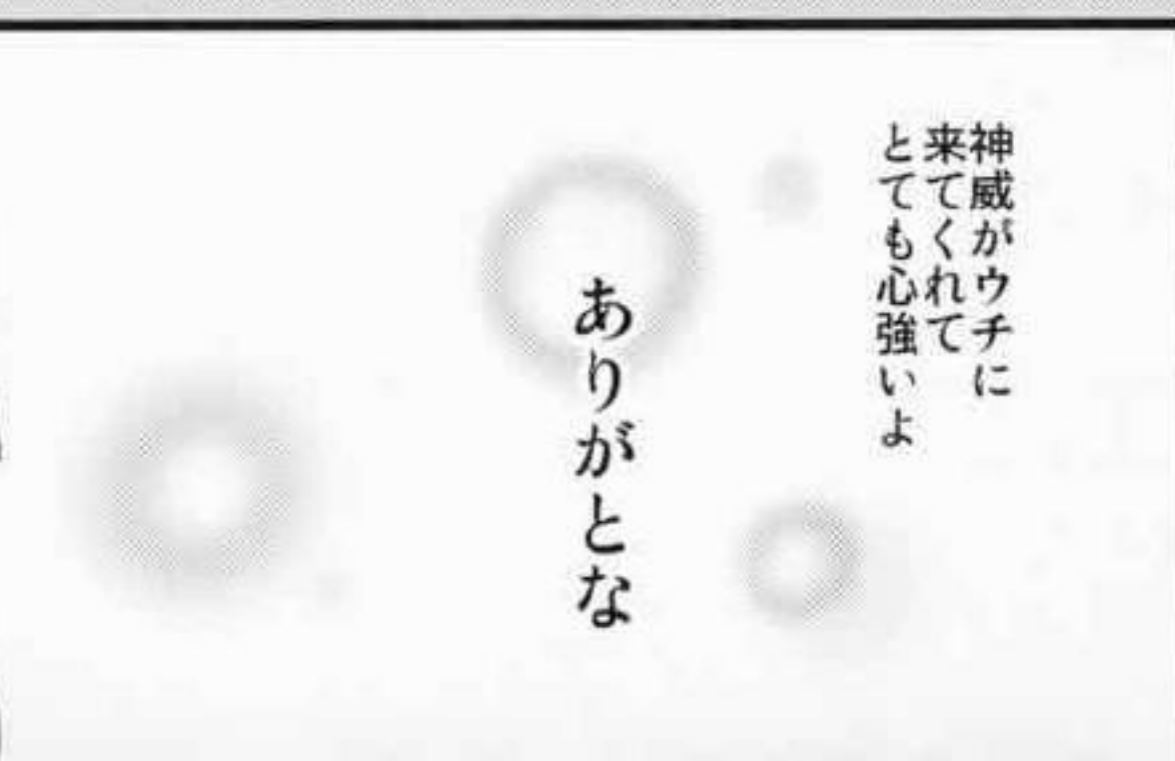 神威がウチに
来てくれて
とても心強いよ
ありがとな